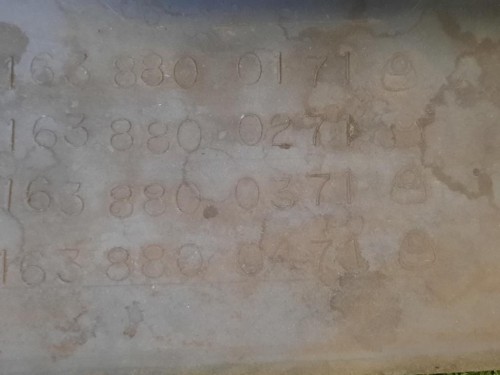 163 880 0171
163 880 0271
163 880 0371
163 880 0471